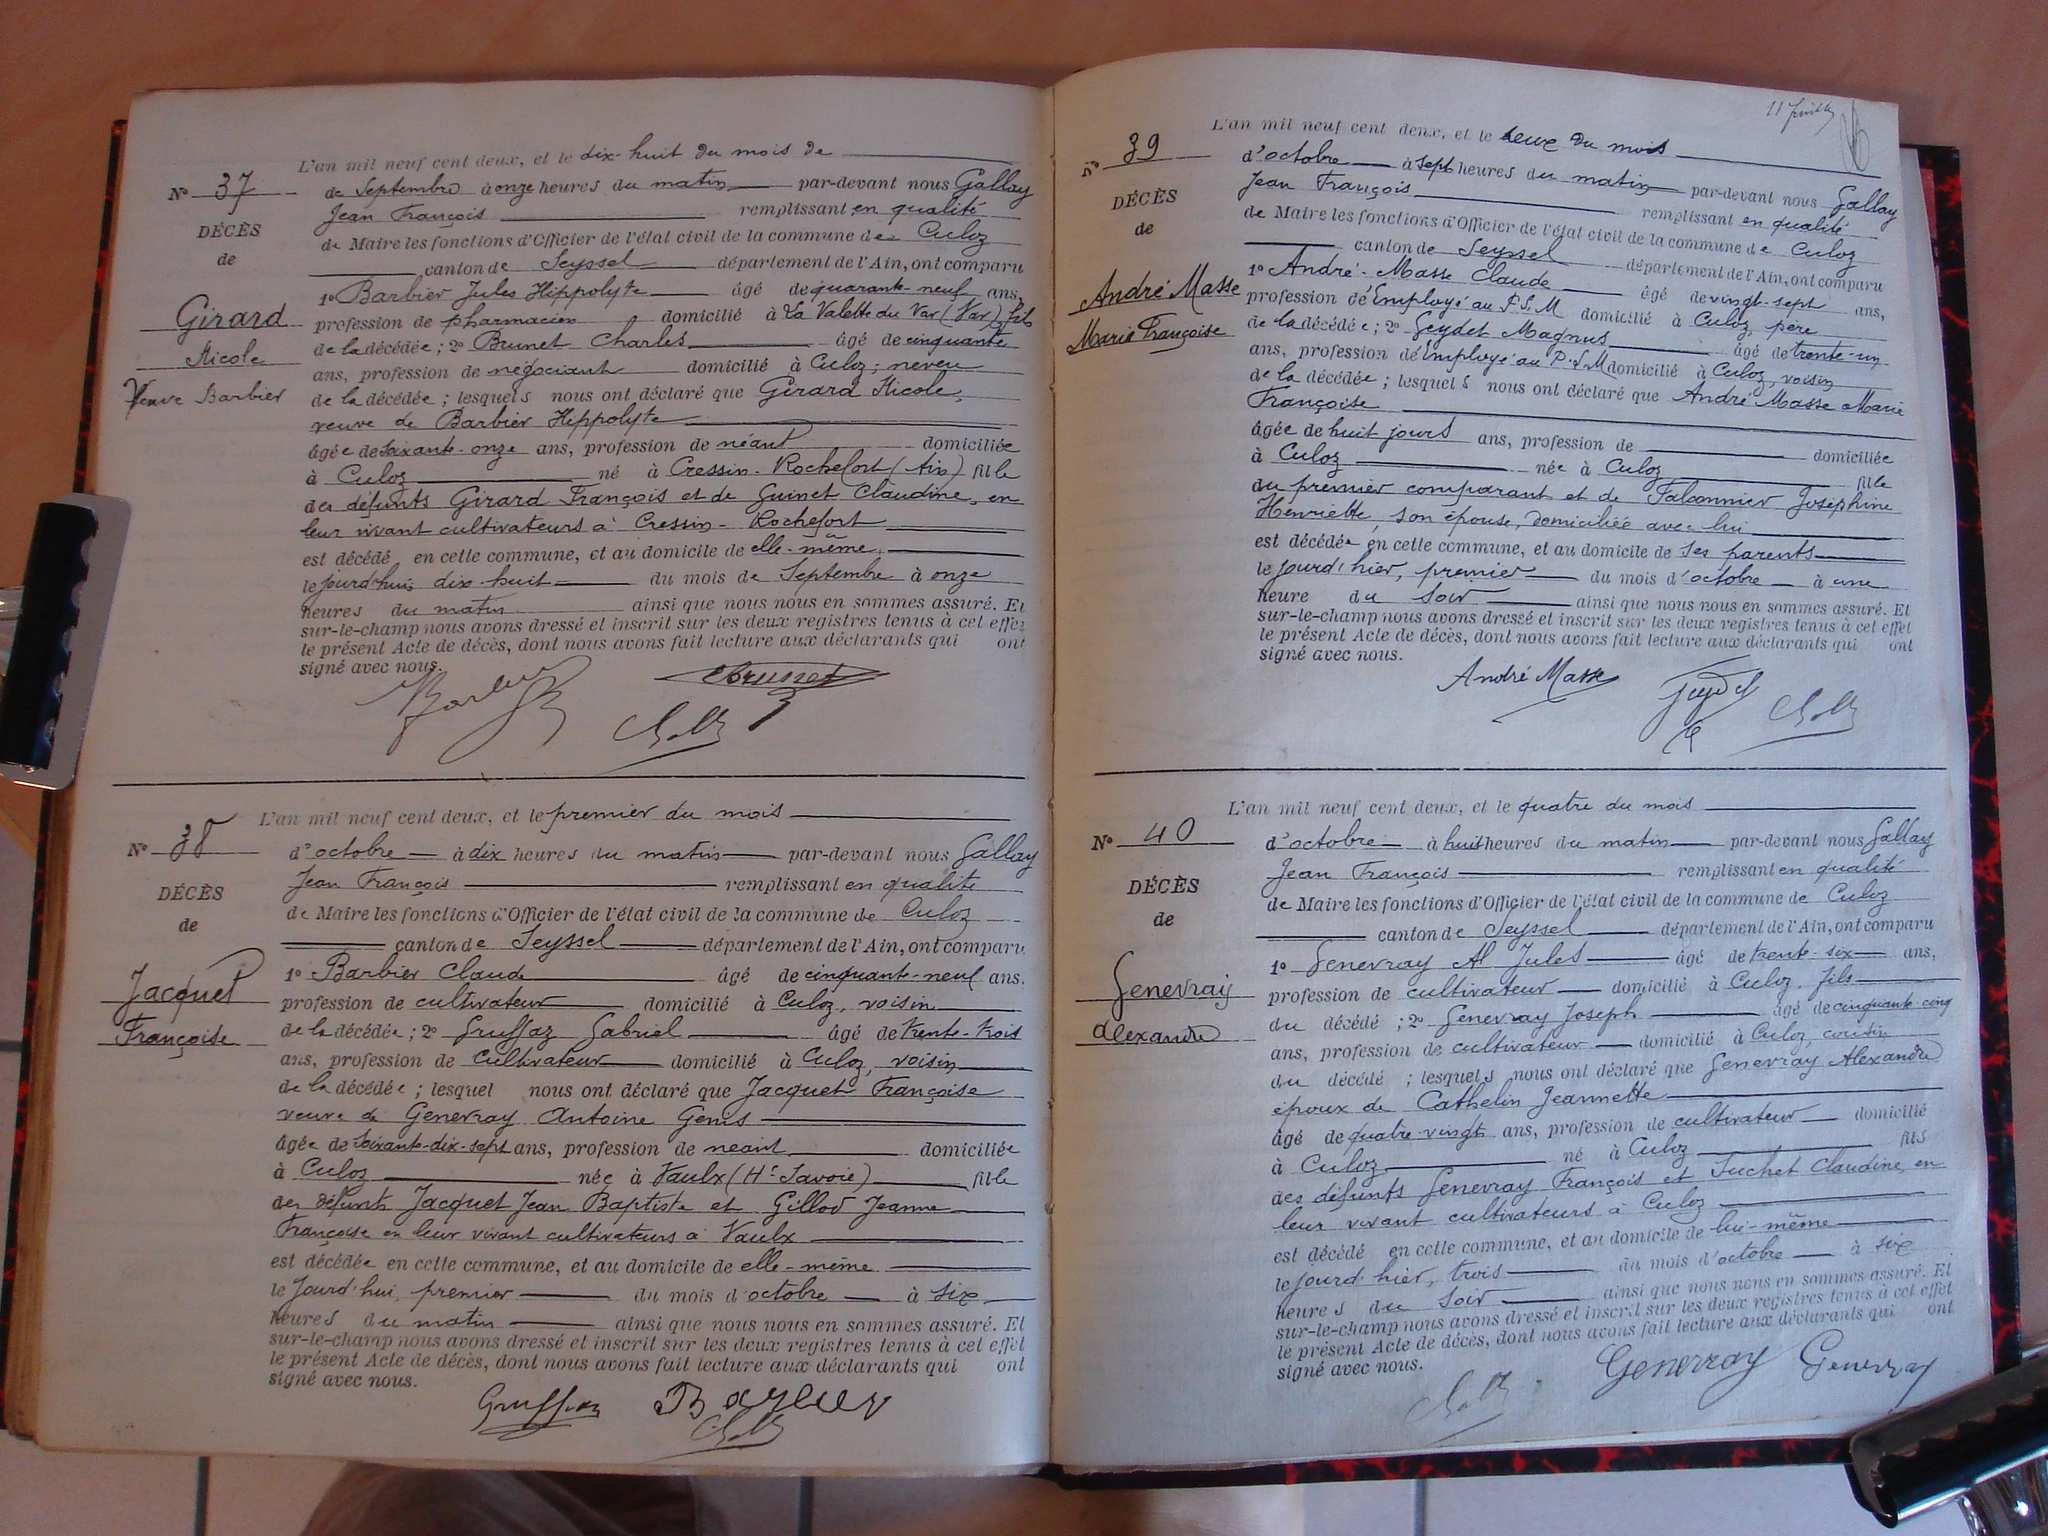 L'an mil neuf cent deux, et le dix-huit du mois de
N° 37
de Septembre à onze heures du matin par-devant nous Gallay
Jean François remplissant en qualité
DÉCÈS
de Maire les fonctions d'Officier de l'état civil de la commune de Culoz
de
canton de Seyssel département de l'Ain, ont comparu
1° Barbier Jules Hippolyte âgé de quarante-neuf ans,
Girard
profession de pharmacien domicilié à La Valette du Var (Var), fils
Nicole
de la décédée; 2° Brunet Charles âgé de cinquante
ans, profession de négociant domicilié à Culoz; neveu
Veuve Barbier
de la décédée; lesquels nous ont déclaré que Girard Nicole,
veuve de Barbier Hippolyte
âgée de soixante-onze ans, profession de néant domiciliée
à Culoz né à Cressin-Rochefort (Ain) fille
des défunts Girard François et de Guinet Claudine, en
leur vivant cultivateurs à Cressin-Rochefort
est décédé en cette commune, et au domicile de elle-même,
le jourd'hui dix-huit du mois de Septembre à onze
heures du matin ainsi que nous nous en sommes assuré. Et
sur-le-champ nous avons dressé et inscrit sur les deux registres tenus à cet effet
le présent Acte de décès, dont nous avons fait lecture aux déclarants qui ont
signé avec nous.
L'an mil neuf cent deux, et le premier du mois
N° 38
d'octobre à dix heures du matin par-devant nous Gallay
Jean François remplissant en qualité
DÉCÈS
de Maire les fonctions d'Officier de l'état civil de la commune de Culoz
de
canton de Seyssel département de l'Ain, ont comparu
1° Barbier Claude âgé de cinquante-neuf ans.
Jacquet
profession de cultivateur domicilié à Culoz, voisin
Françoise
de la décédée; 2° Gruffaz Gabriel âgé de trente-trois
ans, profession de cultivateur domicilié à Culoz, voisin
de la décédée; lesquel nous ont déclaré que Jacquet Françoise
veuve de Genevray Antoine Genis
âgée de soixante-dix-sept ans, profession de néant domiciliée
à Culoz née à Vaulx (Hte Savoie) fille
des défunts Jacquet Jean Baptiste et Gillod Jeanne
Françoise en leur vivant cultivateurs à Vaulx
est décédée en cette commune, et au domicile de elle-même
le jourd'hui, premier du mois d'octobre à six
heures du matin ainsi que nous nous en sommes assuré. Et
sur-le-champ nous avons dressé et inscrit sur les deux registres tenus à cet effet
le présent Acte de décès, dont nous avons fait lecture aux déclarants qui ont
signé avec nous.
Barbier
11
L'an mil neuf cent deux, et le deux du mois
N° 39
d'octobre à sept heures du matin par-devant nous Gallay
Jean François remplissant en qualité
DÉCÈS
de Maire les fonctions d'Officier de l'état civil de la commune de Culoz
de
canton de Seyssel département de l'Ain, ont comparu
1° André-Masse Claude âgé de vingt-sept ans,
André Masse
profession d'Employé au P.L.M domicilié à Culoz, père
Marie Françoise
de la décédée; 2° Geydet Magnus âgé de trente-un
ans, profession d'Employé au P.L.M domicilié à Culoz, voisin
de la décédée; lesquels nous ont déclaré que André Masse Marie
Françoise
âgée de huit jours ans, profession de domiciliée
à Culoz née à Culoz fille
du premier comparant et de Falconnier Joséphine
Henriette, son épouse, domiciliée avec lui
est décédée en cette commune, et au domicile de ses parents
le jourd'hier, premier du mois d'octobre à une
heure du soir ainsi que nous nous en sommes assuré. Et
sur-le-champ nous avons dressé et inscrit sur les deux registres tenus à cet effet
le présent Acte de décès, dont nous avons fait lecture aux déclarants qui ont
signé avec nous.
André Masse
L'an mil neuf cent deux, et le quatre du mois
N° 40
d'octobre à huit heures du matin par-devant nous Gallay
Jean François remplissant en qualité
DÉCÈS
de Maire les fonctions d'Officier de l'état civil de la commune de Culoz
de
canton de Seyssel département de l'Ain, ont comparu
1° Genevray Al Jules âgé de trente-six ans,
Genevray
profession de cultivateur domicilié à Culoz, fils
Alexandre
du décédé; 2° Genevray Joseph âgé de cinquante-cinq
ans, profession de cultivateur domicilié à Culoz, cousin
du décédé; lesquels nous ont déclaré que Genevray Alexandre
époux de Cathelin Jeannette
âgé de quatre-vingts ans, profession de cultivateur domicilié
à Culoz né à Culoz fils
des défunts Genevray François et Suchet Claudine, en
leur vivant cultivateurs à Culoz
est décédé en cette commune, et au domicile de lui-même
le jourd'hier, trois du mois d'octobre à six
heures du soir ainsi que nous nous en sommes assuré. Et
sur-le-champ nous avons dressé et inscrit sur les deux registres tenus à cet effet
le présent Acte de décès, dont nous avons fait lecture aux déclarants qui ont
signé avec nous.
Genevray Genevray